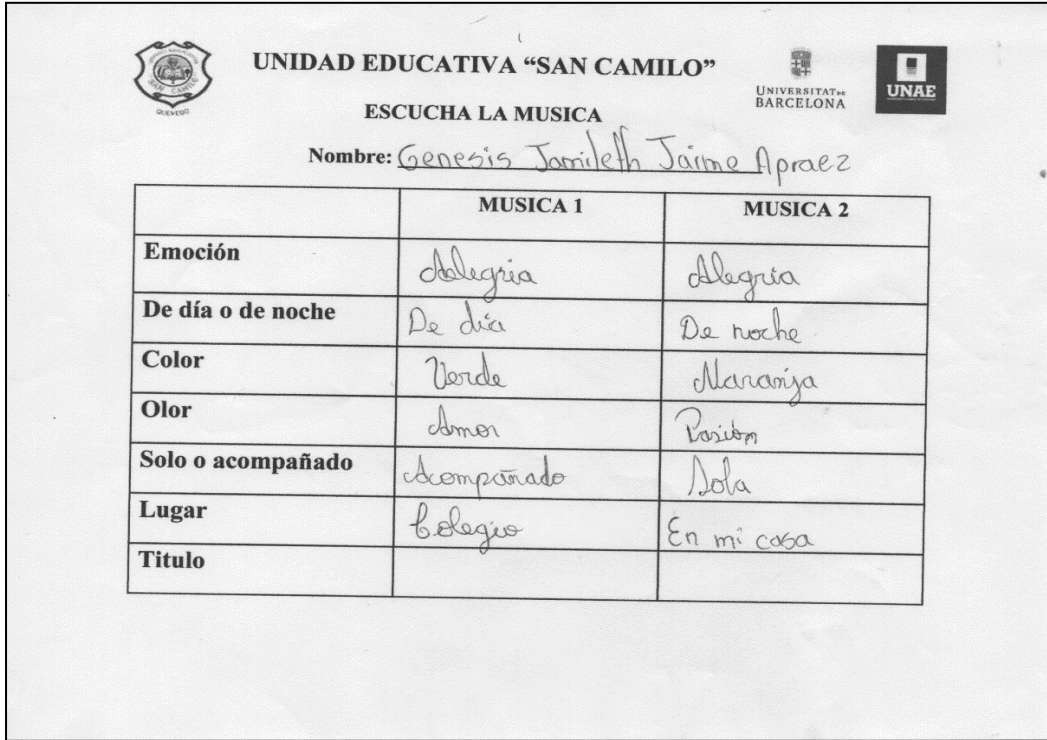 UNIDAD EDUCATIVA “SAN CAMILO”
SAN CAMILO
QUEVEDO
UNIVERSITAT DE
BARCELONA
UNAE
ESCUCHA LA MUSICA
Nombre: Genesis Jamileth Jaime Apraez
MUSICA 1 MUSICA 2
Emoción Alegria Alegria
De día o de noche De día De noche.
Color Verde Naranja
Olor Amor Pasión
Solo o acompañado Acompañado Sola
Lugar Colegio En mi casa
Titulo